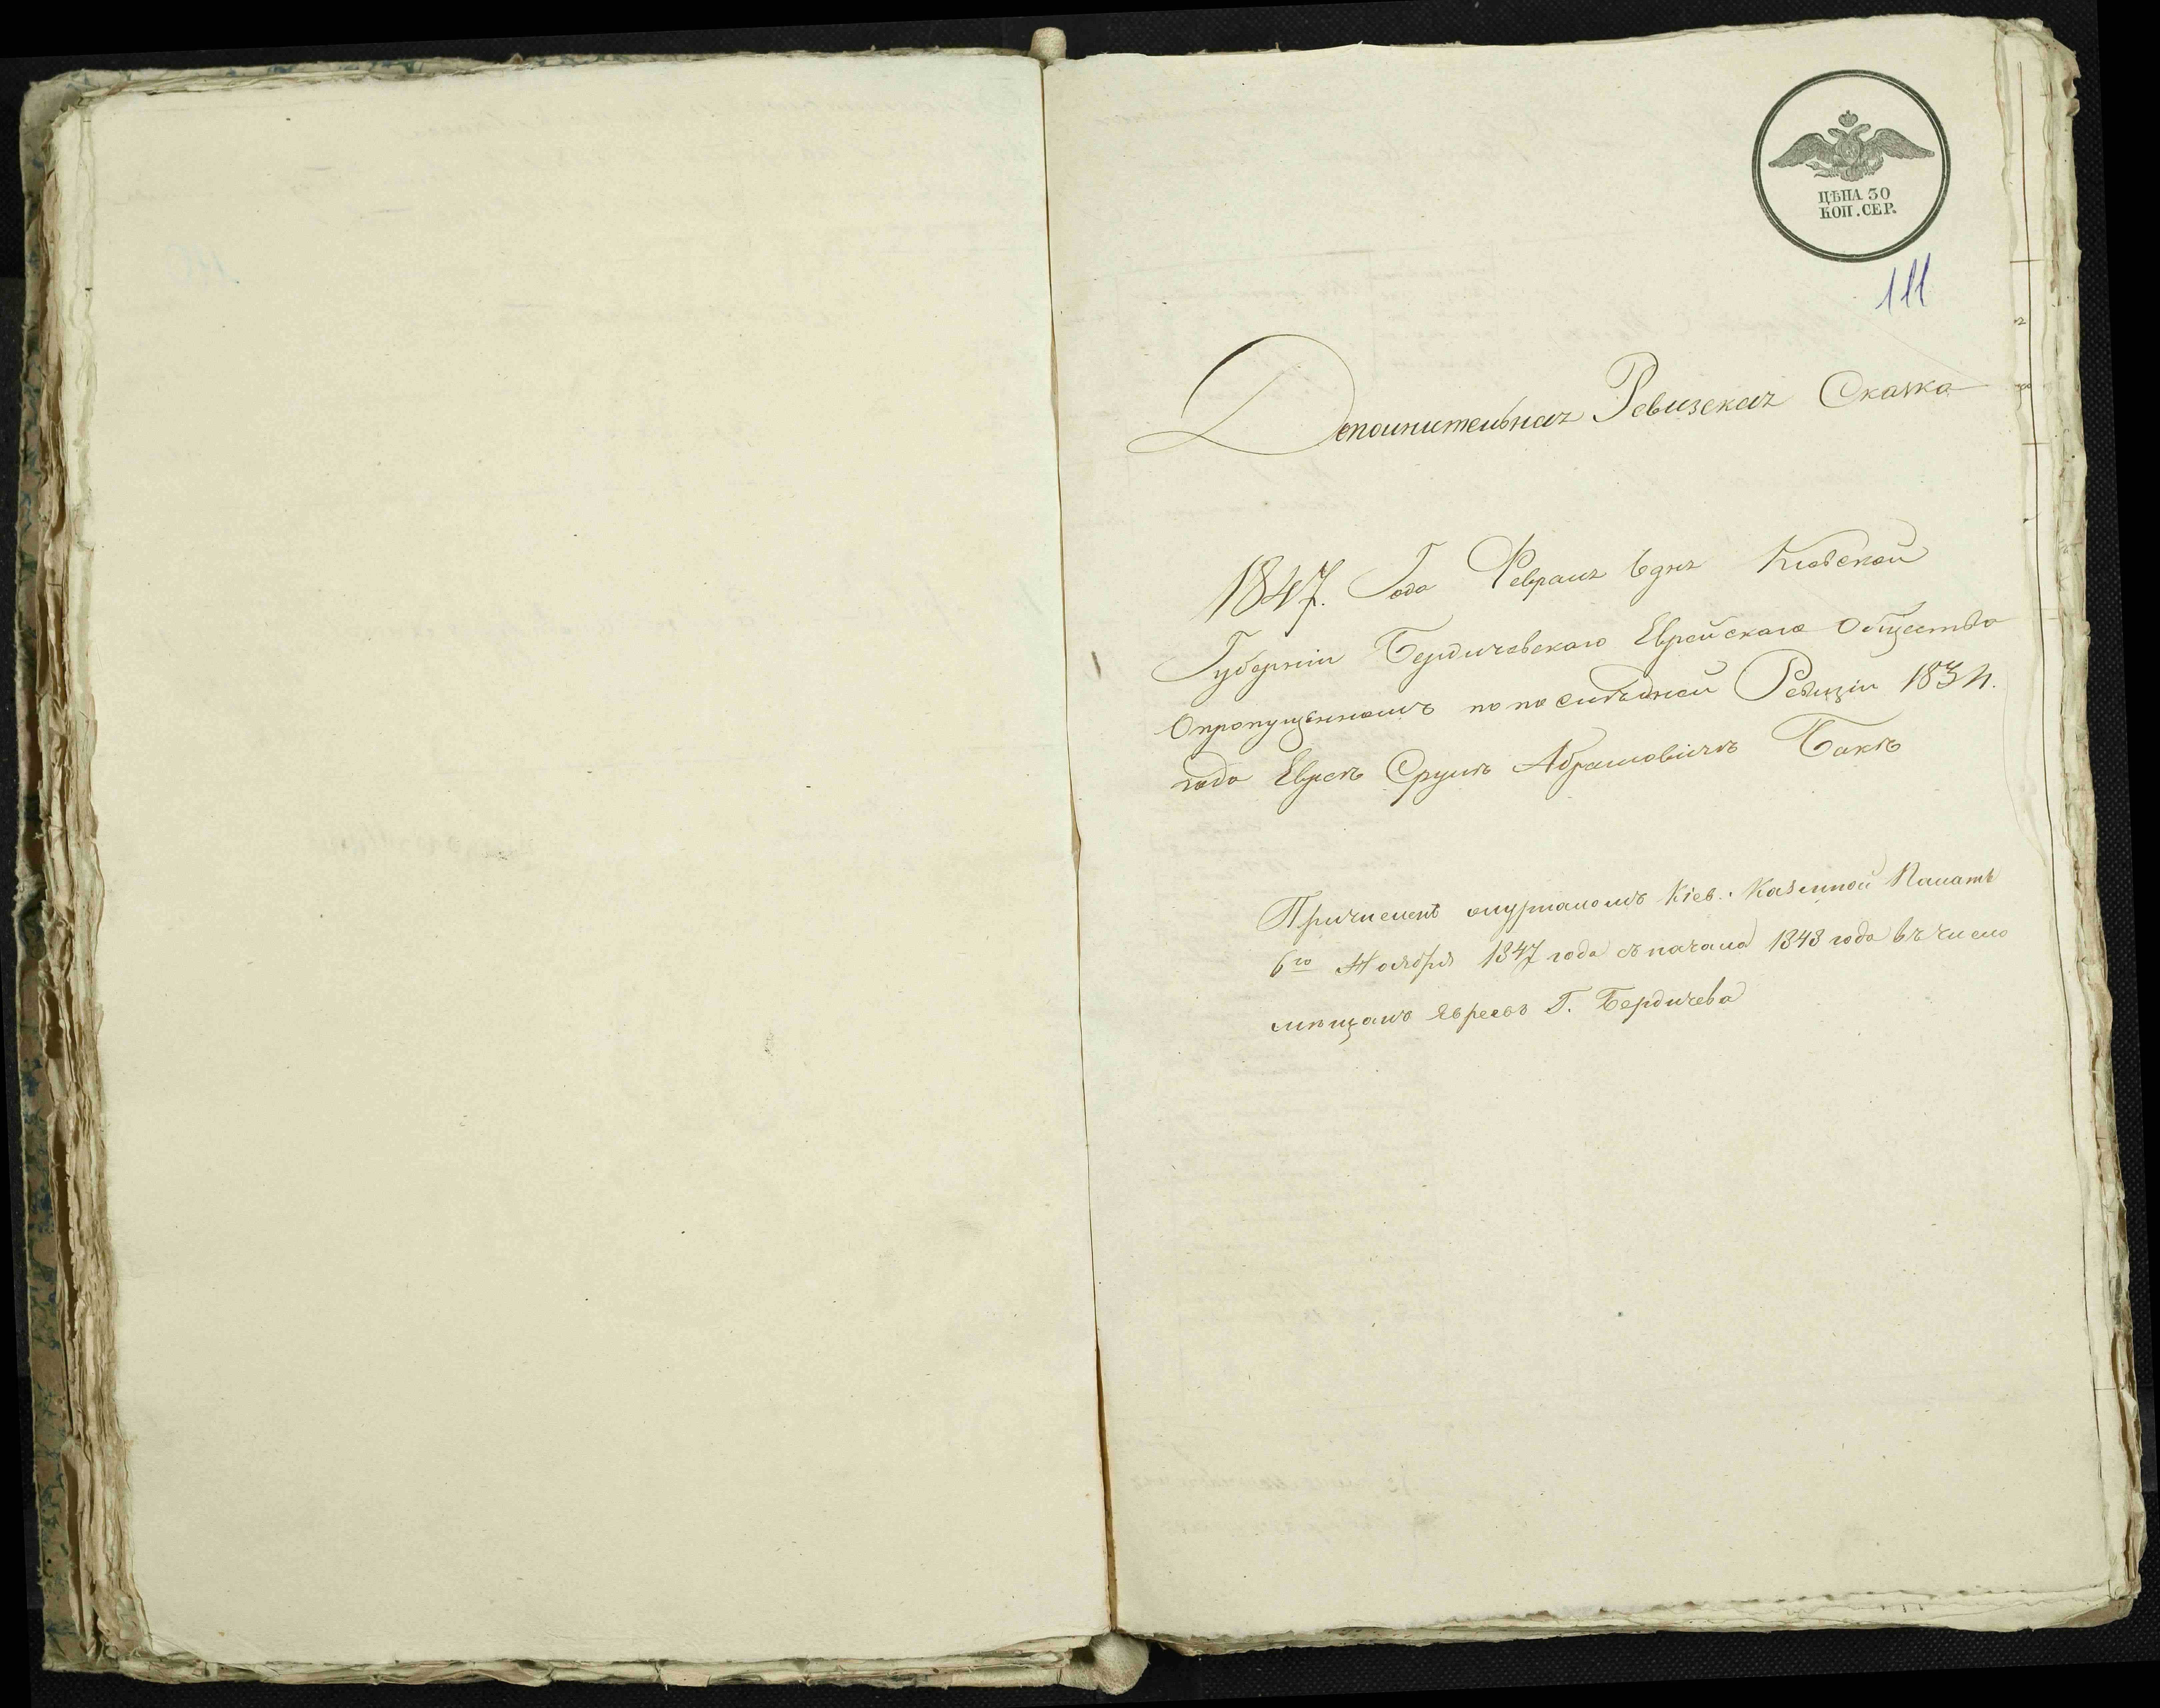 ЦѢНА 30
КОП. СЕР.
111
Дополнительная Ревизская Сказка
1847. Года Февраля 6 дня Кіевской
Губерніи Бердичевскаго Еврейскаго Общества
О пропущенномъ по последней Ревизіи 1834.
года Еврею Сруль Абрамовичъ Бакъ
Причисленъ журналомъ Кіев. Казенной Палаты
6го Ноября 1847 года съ начала 1848 года въ число
мѣщанъ Евреевъ Г. Бердичева